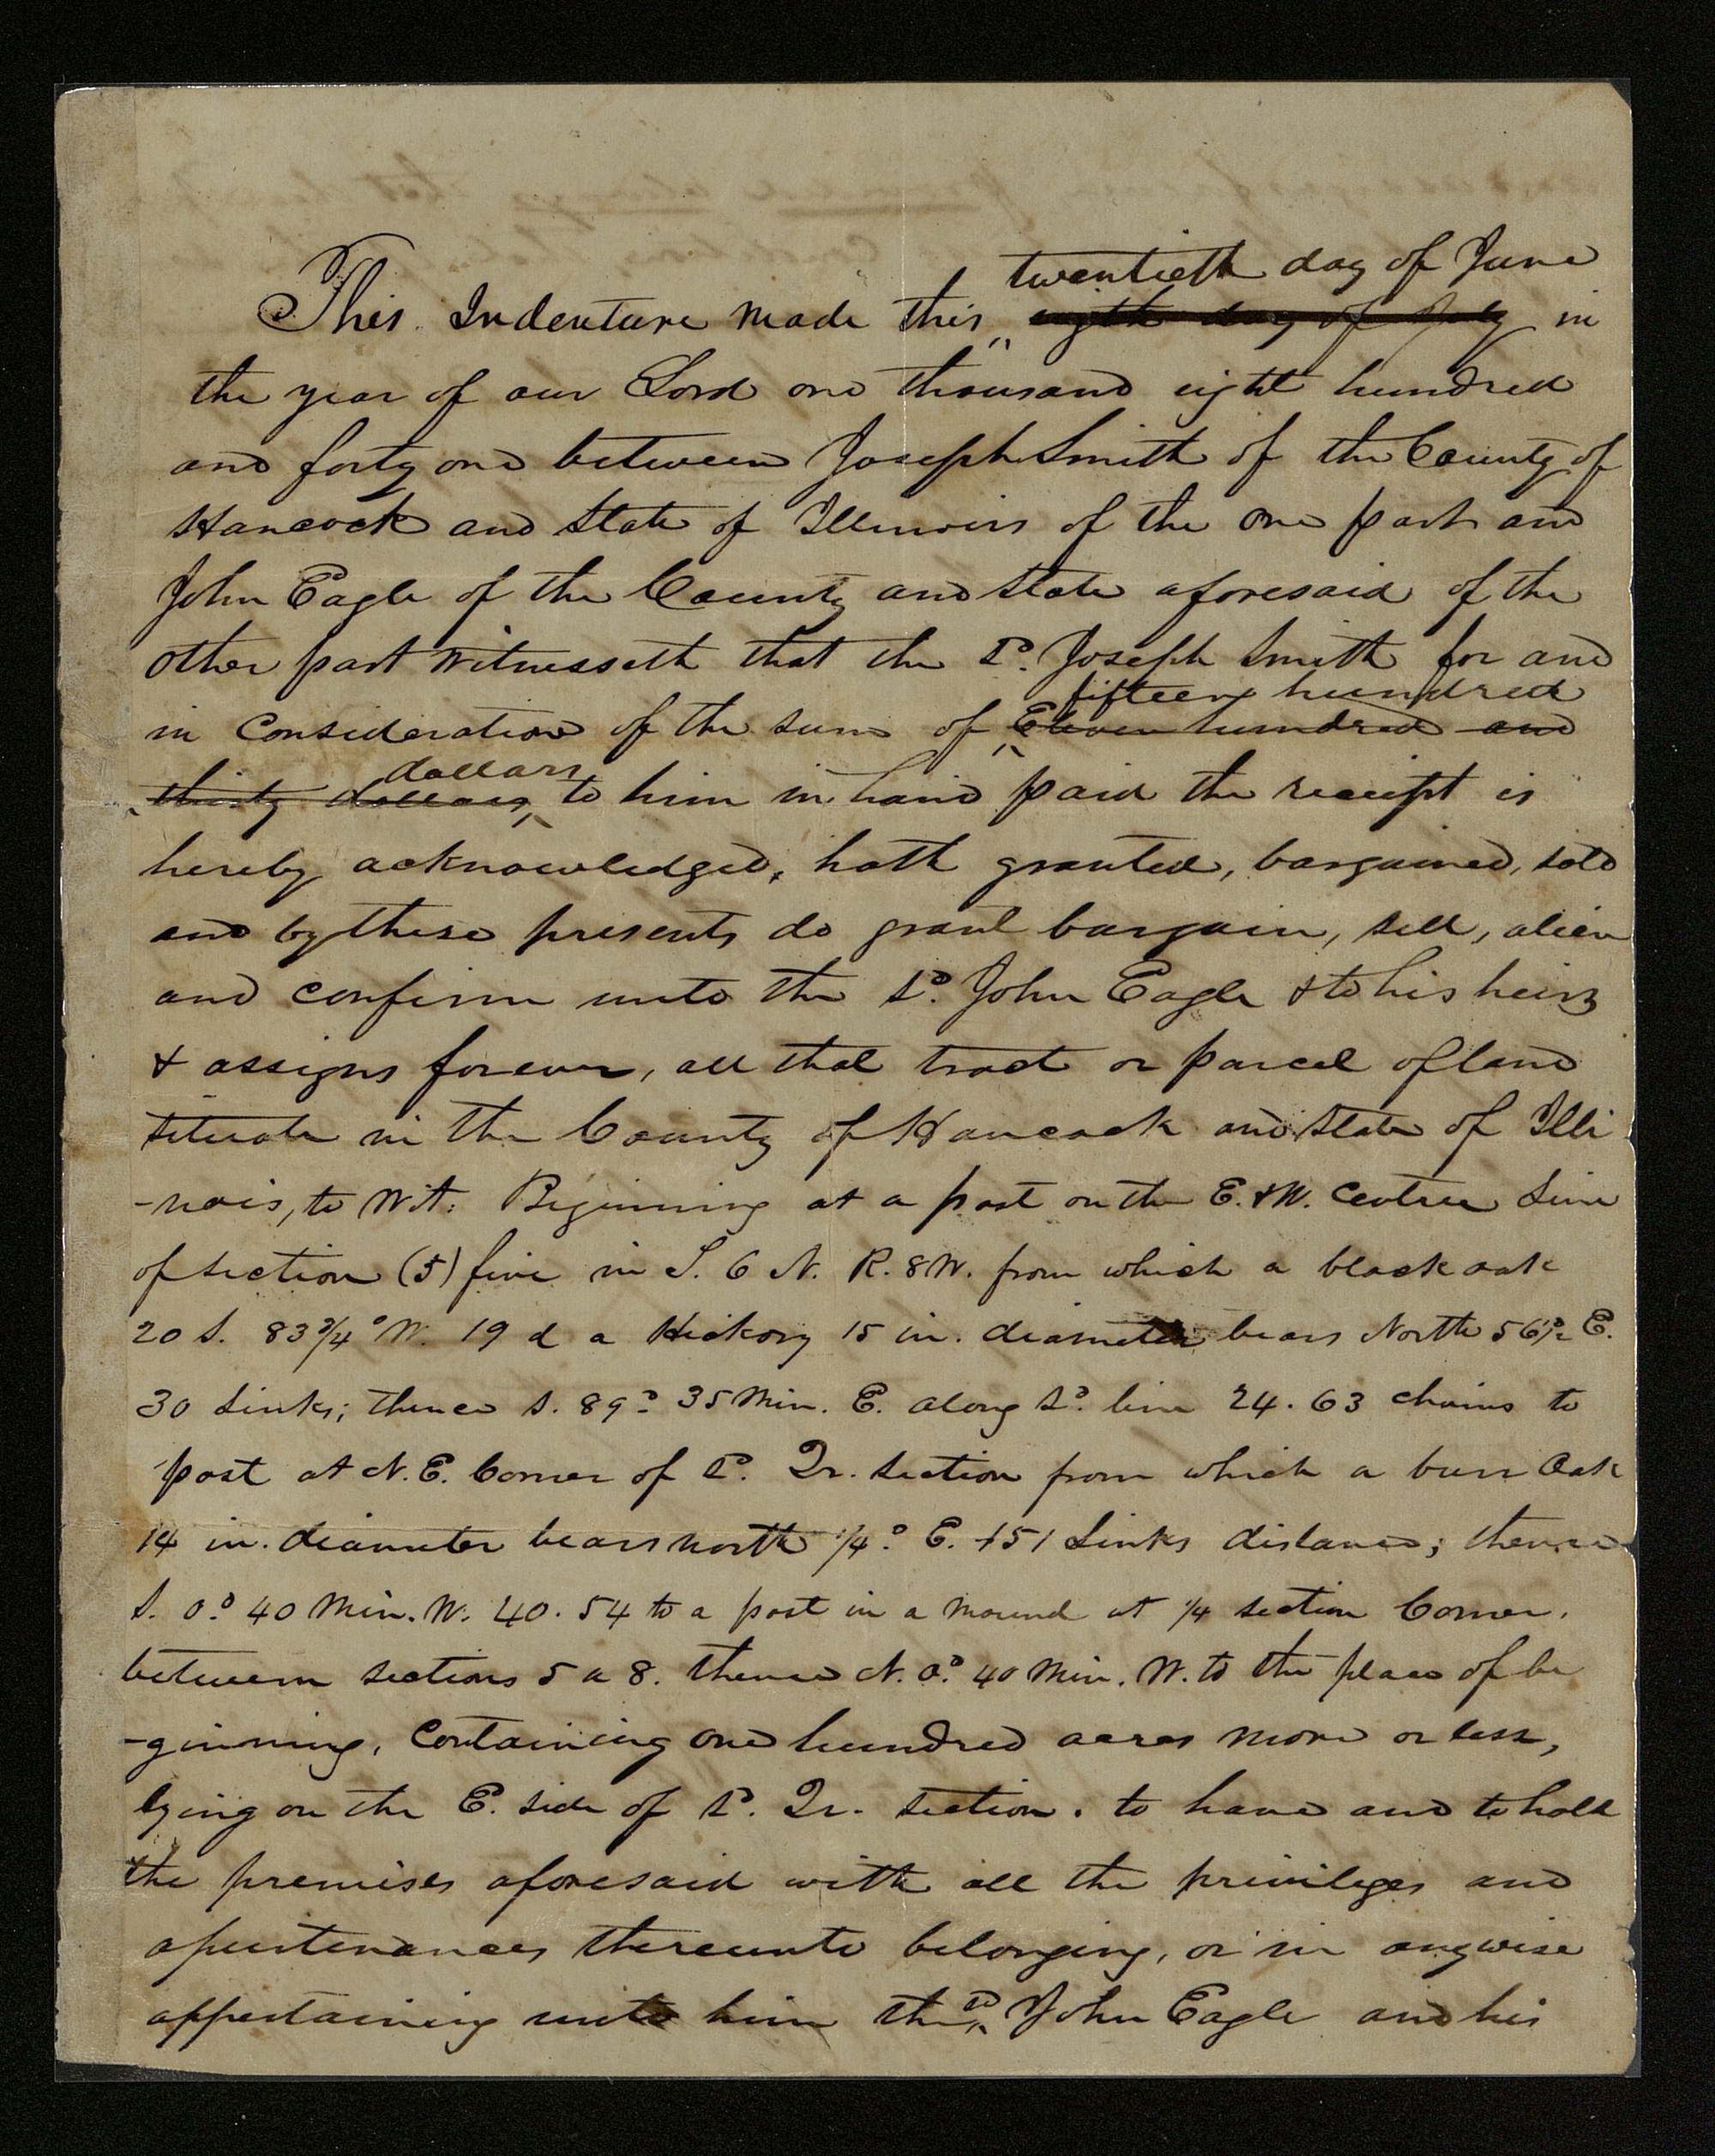 twentieth day of June
This Indenture made this eigth day of July in
the year of our Lord one thousand eight hundred
and forty one between Joseph Smith of the County of
Hancock and State of Illinois of the one part and
John Eagle of the County and State aforesaid of the
other part Witnesseth that the Sd. Joseph Smith for and
fifteen hundred
in Consideration of the sum of Eleven hundred and
dollars
thirty dollars, to him in hand paid the receipt is
hereby acknowledged, hath granted, bargained, sold
and by these presents do grant bargain, sell, alien
and confirm unto the Sd. John Eagle & to his heirs
& assigns forever, all that tract or parcel of land
situate in the County of Hancock and State of Illi
-nois, to Wit: Beginning at a post on the E. & W. Centre Line
of section (5) five in T. 6 N. R. 8 W. from which a black oak
20 S. 83 3/4° W. 19 d a Hickory 15 in. diameter bears North 56 1/2° E.
30 Links; thence S. 89° 35 Min. E. along Sd. line 24.63 chains to
post at N. E. Corner of Sd. Qr. section from which a burr Oak
14 in. diameter bears north 1/4° E. 151 Links distance; thence
S. 0° 40 Min. W. 40.54 to a post in a mound at 1/4 section Corner.
between sections 5 a 8. thence N. 0° 40 Min. W. to the place of be
-ginning, Containing one hundred acres more or less,
lying on the E. side of Sd. Qr. section. to have and to hold
the premises aforesaid with all the privileges and
apurtenances thereunto belonging, or in anywise
appertaining unto him the Sd. John Eagle and his